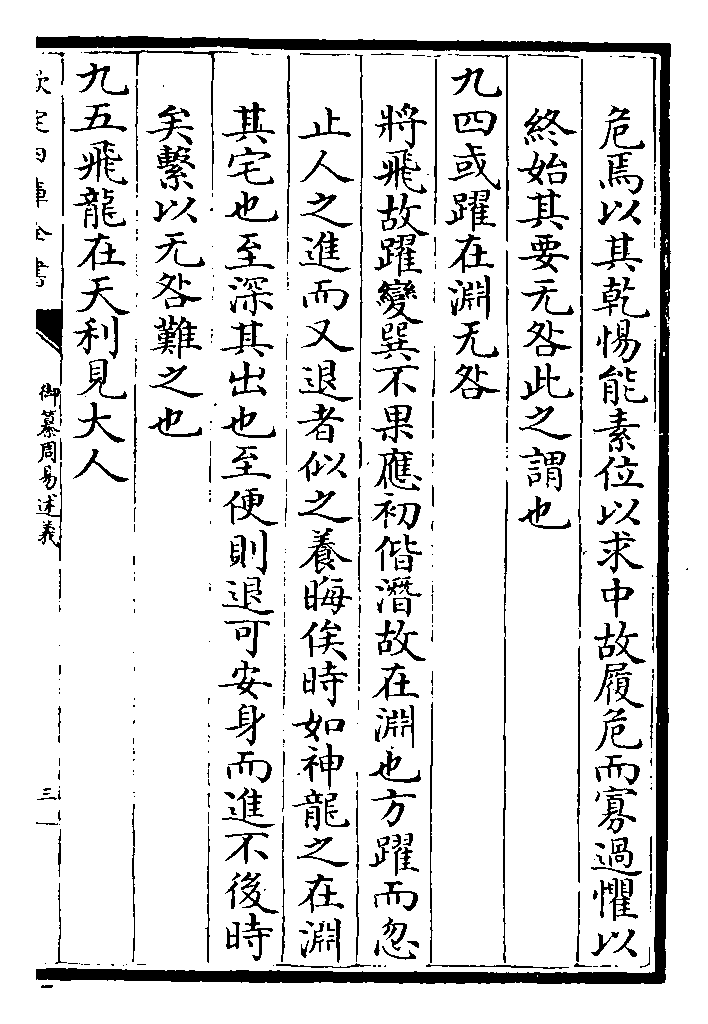 危焉以其乾惕能素位以求中故履危而寡過懼以
終始其要无咎此之謂也
九四或躍在淵无咎
將飛故躍變巽不果應初偕潛故在淵也方躍而忽
止人之進而又退者似之養晦俟時如神龍之在淵
其宅也至深其出也至便則退可安身而進不後時
矣繫以无咎難之也
九五飛龍在天利見大人
欽定四庫全書
御纂周易述義
三